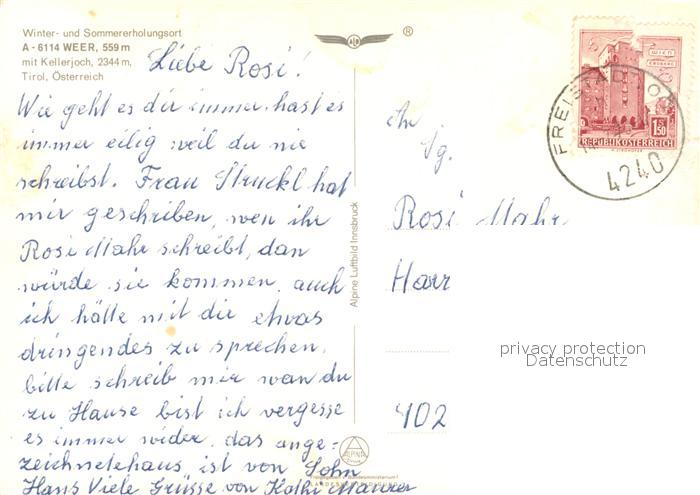 Winter- und Sommererholungsort
A - 6114 WEER, 559 m
mit Kellerjoch, 2344 m,
Tirol, Österreich
®
Liebe Rosi!
Wie geht es dir immer, hast es
immer eilig weil du nie
schreibst. Frau Struckl hat
mir geschriben, wen ihr
Rosi Mahr schreibt, dan
würde sie kommen, auch
ich hätte mit dir etwas
dringendes zu sprechen,
bitte schreib mir wan du
zu Hause bist ich vergesse
es immer wider, das ange-
zeichnetehaus, ist von Sohn
Hans Viele Grüsse von Kathi Maurer
Alpine Luftbild Innsbruck
ALPINE
WIEN
1.50
REPUBLIK ÖSTERREICH
FREISTADT, OÖ
4240
Rosi Mahr
Harr
402
privacy protection
Datenschutz